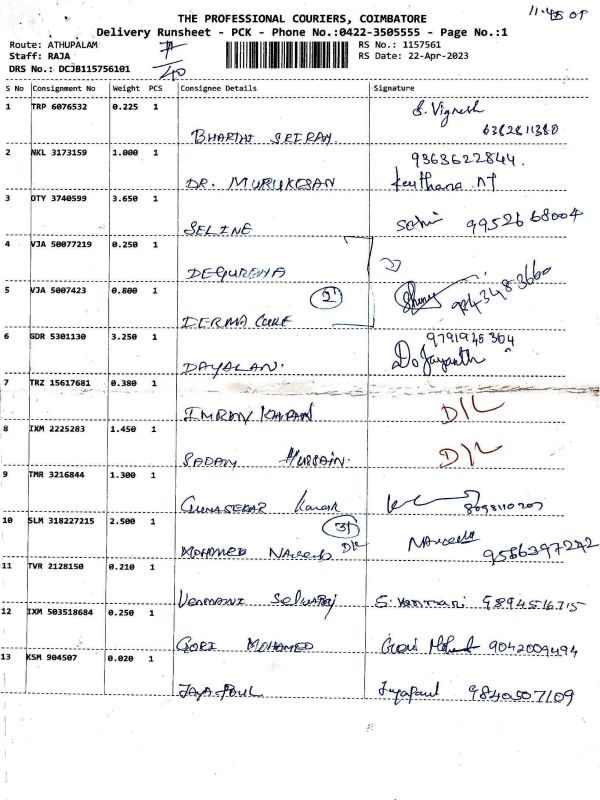 THE PROFESSIONAL COURIERS, COIMBATORE
Delivery Runsheet - PCK - Phone No.:0422-3505555 - Page No.:1
Route: ATHUPALAM
RS No.: 1157561
Staff: RAJA
RS Date: 22-Apr-2023
DRS No.: DCJB115756101
S No Consignment No Weight PCS Consignee Details Signature
1 TRP 6076532 0.225 1
S. Vignesh
6382811380
BHARTHI SRIRAM
2 NKL 3173159 1.000 1
9363622844.
DR. MURUKESAN
Keerthana
3 DTY 3740599 3.650 1
SELINE
9952668004
4 VJA 50077219 0.250 1
5 VJA 5007423 0.800 1
2
DERMA CURE
6 GDR 5301130 3.250 1
DAYALAN.
Jayanth
7 TRZ 15617681 0.380 1
IMRAN
D/L
8 IXM 2225283 1.450 1
SADAM HUSSAIN.
D/L
9 TMR 3216844 1.300 1
GUNASEKAR
10 SLM 318227215 2.500 1
31
MOHAMED
11 TVR 2128150 0.210 1
9894516715
12 IXM 503518684 0.250 1
GORI MOHAMED
9042009494
13 KSM 904507 0.020 1
JAYA PAUL
Jayapaul 9840507109